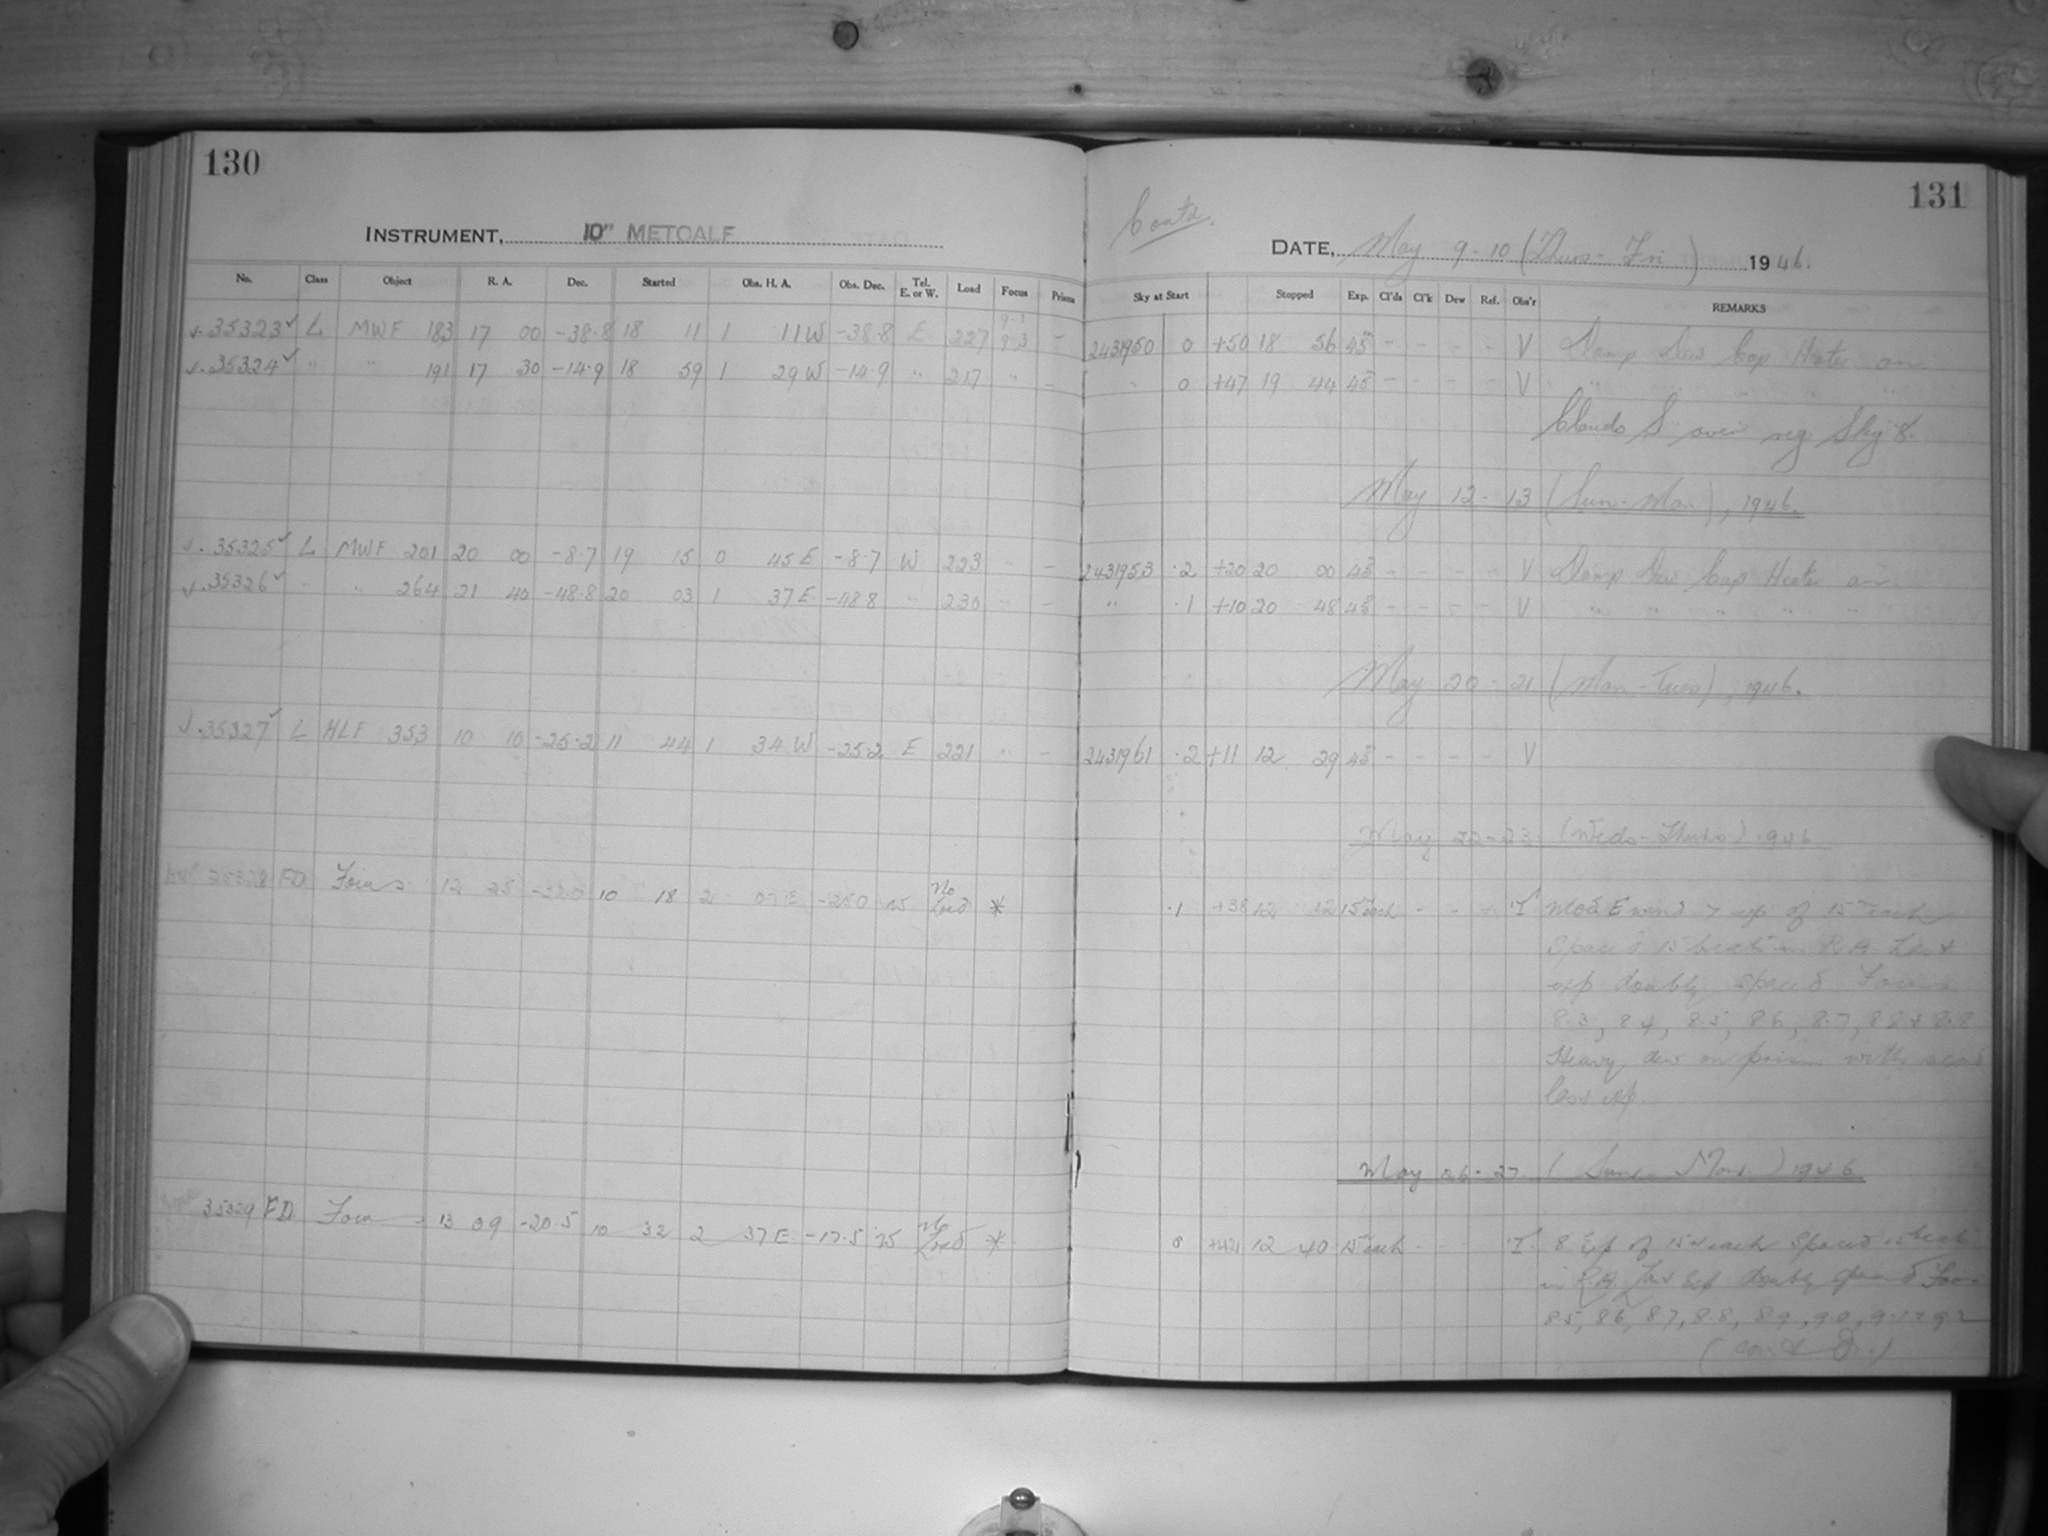 130
INSTRUMENT, 10" METCALF
No. Class Object R. A. Dec. Started Obs. H. A. Obs. Dec. Tel. E. or W. Load Focus Prisms
35323 L MWF 183 17 00 -38.8 18 11 1 11 W -38.8 E 227 9.3 -
35324 " " 191 17 30 -14.9 18 59 1 29 W -14.9 " 217 " -
35325 L MWF 201 20 00 -8.7 19 15 0 45 E -8.7 W 223 " -
35326 " " 264 21 40 -48.8 20 03 1 37 E -48.8 " 230 " -
35327 L HLF 353 10 10 -25.2 11 44 1 34 W -25.2 E 221 " -
35328 FD Focus 12 25 10 18 2 07 E -25.0 No Load *
35329 FD Focus 13 09 -20.5 10 32 2 37 E -17.5 No Load *
131
Contd.
DATE, May 9-10 (Thurs-Fri) 1946.
Sky at Start Stopped Exp. Cl'ds Cl'k Dew Ref. Obs'r REMARKS
2431950 0 +50 18 56 45 - - - - V Damp Dew Cap Heater on
" 0 +47 19 44 45 - - - - V " " " " "
Clouds S over reg. Sky 8.
May 12-13 (Sun-Mon), 1946.
2431953 .2 +20 20 00 45 - - - - V Damp Dew Cap Heater on
" .1 +10 20 48 45 - - - - V " " " " "
May 20-21 (Mon-Tues), 1946.
2431961 .2 +11 12 29 45 - - - - V
May 22-23 (Weds-Thurs) 1946
.1 +38 12 12 15m each - - - Mod E wind 7 exp of 15m each
spaced 15 beats in R.A. Last
exp doubly spaced Focus
8.3, 8.4, 8.5, 8.6, 8.7, 8.8 + 8.8
Heavy dew on prism with
last exp.
May 26-27 (Sun-Mon) 1946
0 12 40 15m each - - 8 Exp of 15m each spaced 15 beats
in R.A. Last Exp doubly spaced Focus
8.5, 8.6, 8.7, 8.8, 8.9, 9.0, 9.1 + 9.2